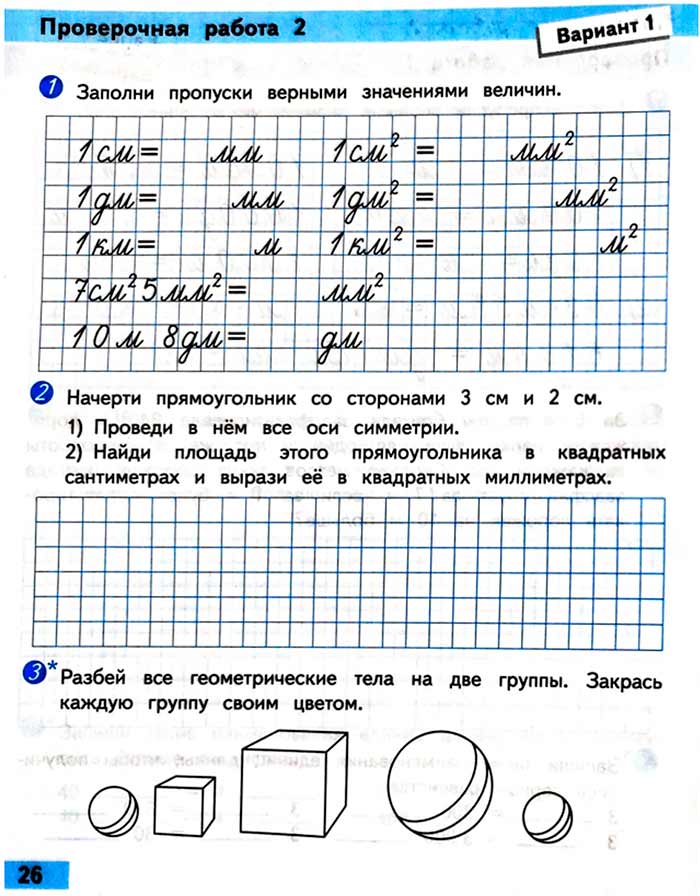 Проверочная работа 2
Вариант 1
1 Заполни пропуски верными значениями величин.
1 см = мм 1 см² = мм²
1 дм = мм 1 дм² = мм²
1 км = м 1 км² = м²
7 см² 5 мм² = мм²
10 м 8 дм = дм
2 Начерти прямоугольник со сторонами 3 см и 2 см.
1) Проведи в нём все оси симметрии.
2) Найди площадь этого прямоугольника в квадратных
сантиметрах и вырази её в квадратных миллиметрах.
3* Разбей все геометрические тела на две группы. Закрась
каждую группу своим цветом.
26